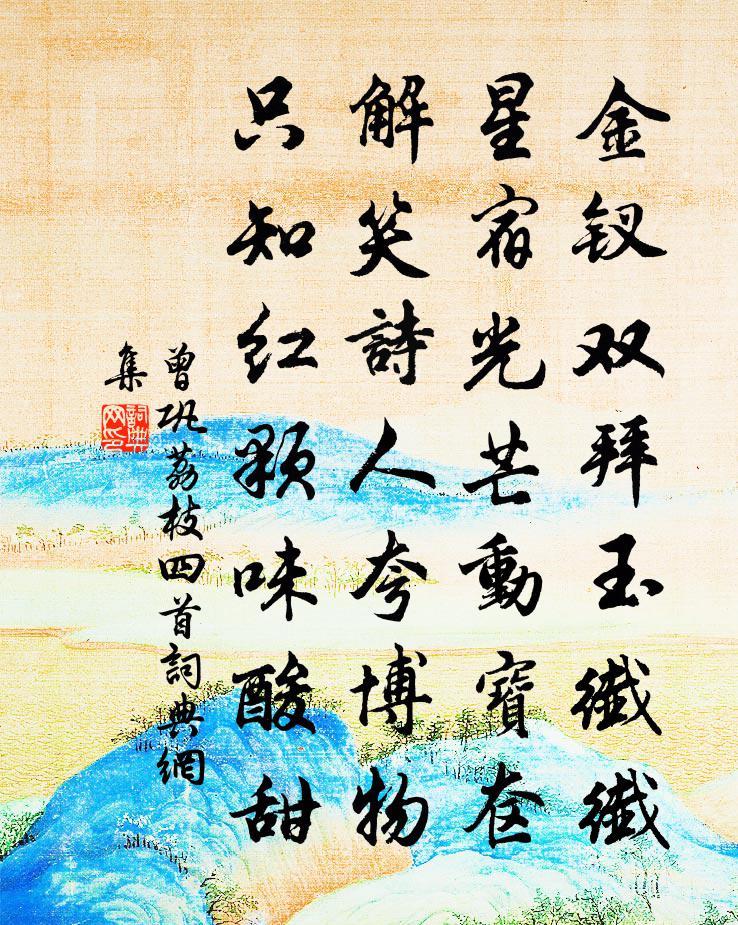 金钗双拜玉纖纖
星宿光芒動寶奁
解笑詩人夸博物
只知红颗味酸甜
曾巩荔枝四首詞典網
集
詞典網印